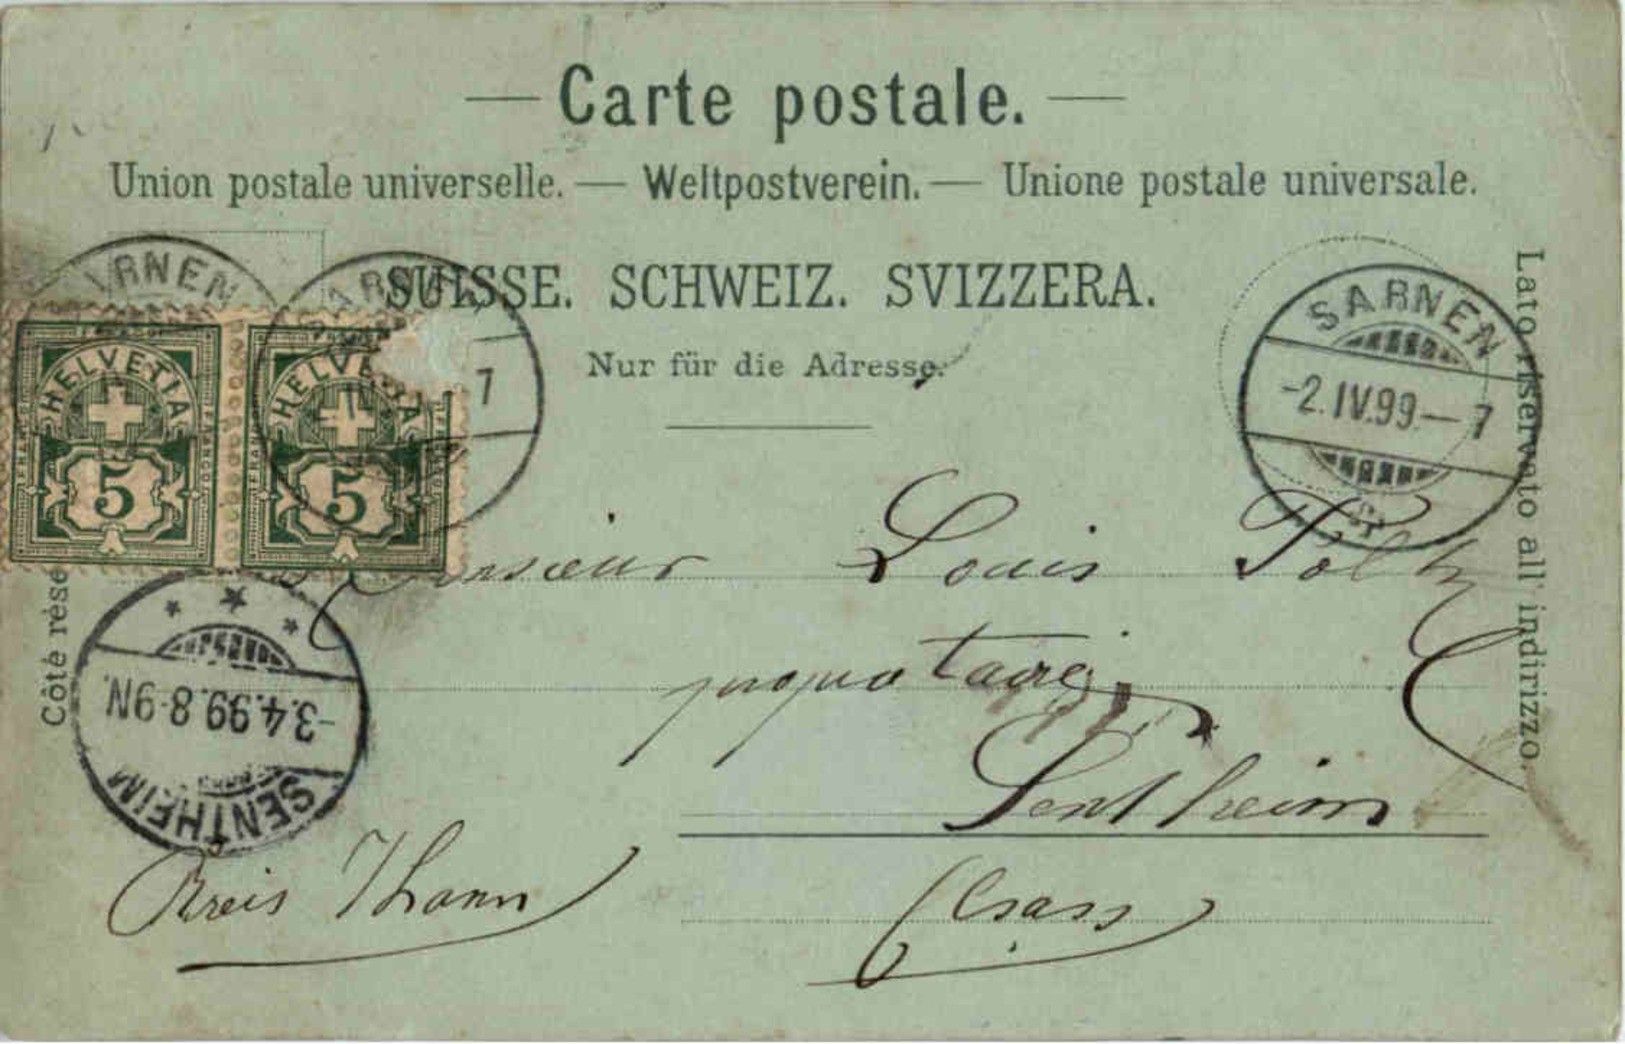 Carte postale.
Union postale universelle. — Weltpostverein. — Unione postale universale.
SUISSE. SCHWEIZ. SVIZZERA.
Nur für die Adresse.
SARNEN
-2.IV.99.—7
SARNEN
7
HELVETIA
FRANCO
5
HELVETIA
5
Côté rése
Lato riservato all' indirizzo.
-3.4.99.8-9N.
SENTHEIM
Monsieur Louis
propriétaire
Sentheim
Kreis Thann
Elsass